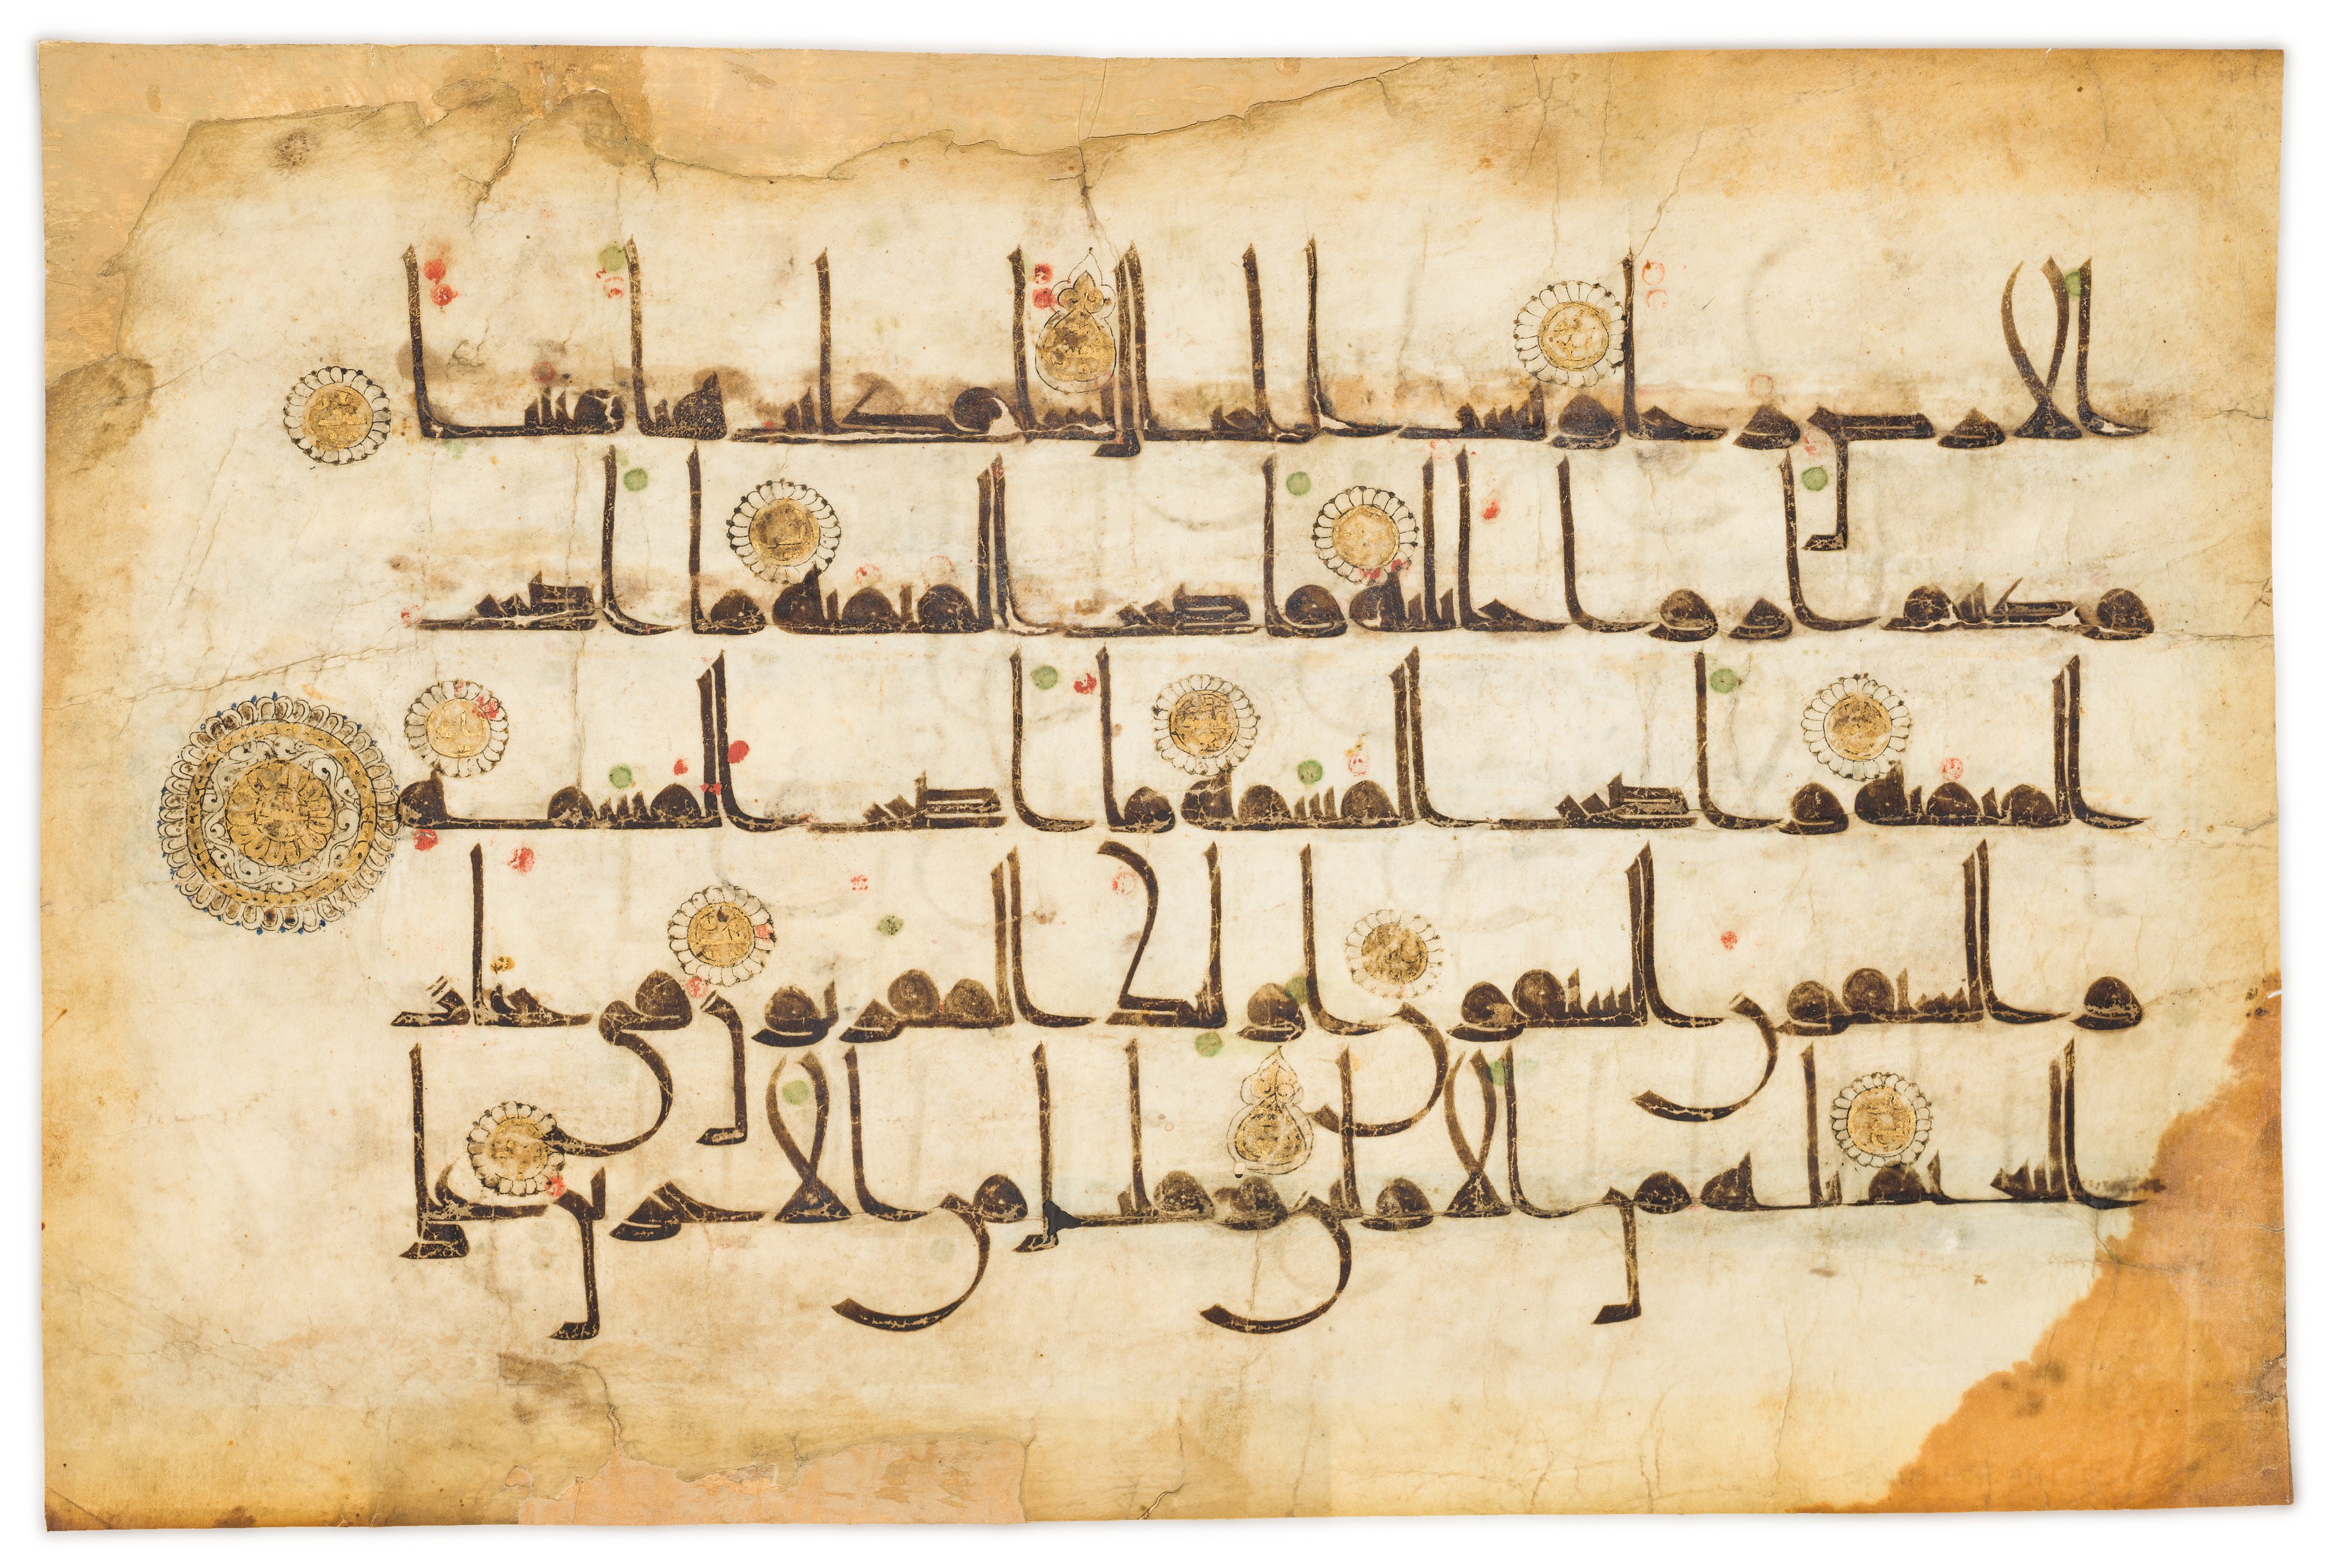 الارض رجا وبست الجبال بسا فكانت هبا منبثا
وكنتم ازواجا ثلثة فاصحب الميمنة ما اصحب
الميمنة واصحب المشمة ما اصحب المشمة
والسبقون السبقون اولئك المقربون في جنات
النعيم ثلة من الاولين وقليل من الاخرين على